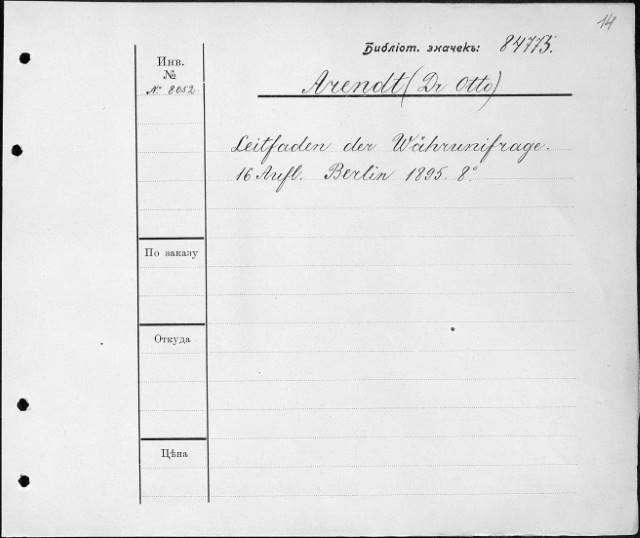 14
Библіот. значекъ: 84775.
Инв.
№
№ 8052.
Arendt (Dr Otto)
Leitfaden der Währunifrage.
16 Aufl. Berlin 1895. 8°
По заказу
Откуда
Цѣна